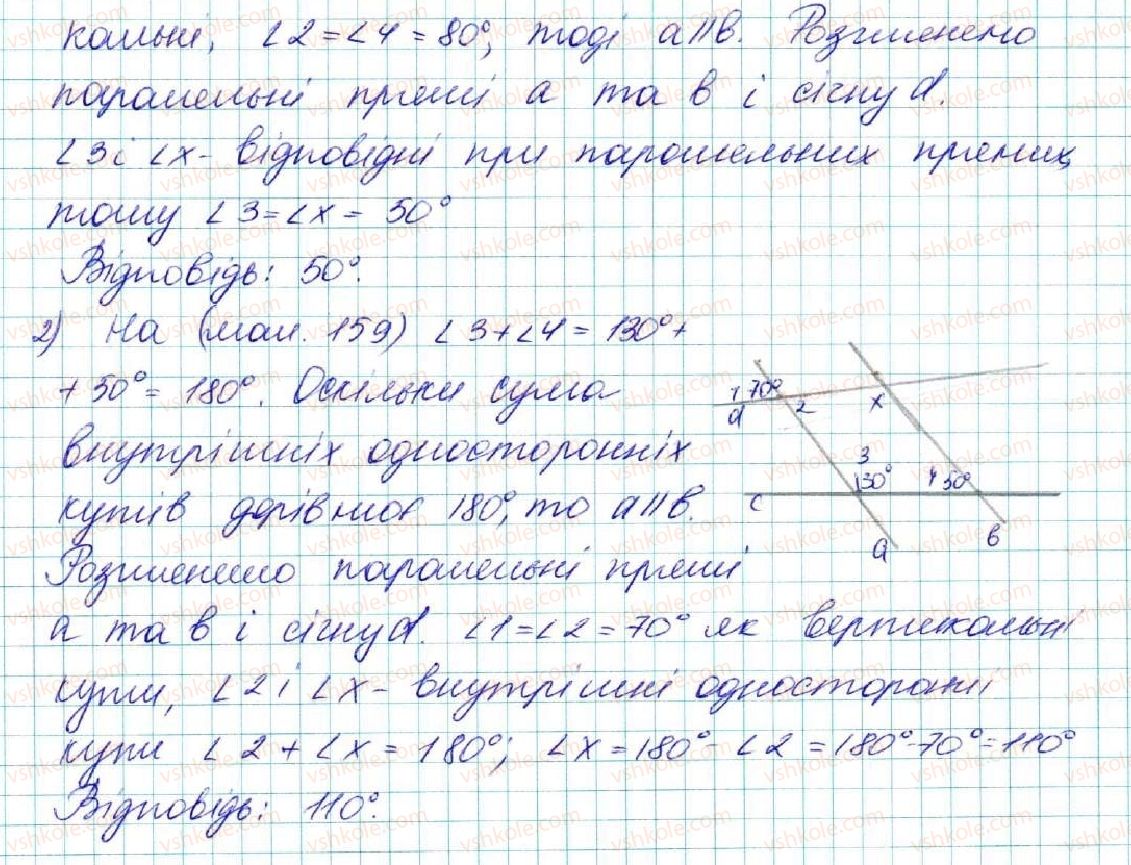 кальні, ∠2=∠4=80°, тоді a||в. Розглянемо
паралельні прямі a та в і січну d.
∠3 і ∠x - відповідні при паралельних прямих,
тому ∠3=∠x= 50°
Відповідь: 50°.
2) На (мал. 159) ∠3+∠4=130°+
+50°=180°. Оскільки сума
внутрішніх односторонніх
кутів дорівнює 180°, то a||в.
Розглянемо паралельні прямі
a та в і січну d. ∠1=∠2=70° як вертикальні
кути, ∠2 і ∠x - внутрішні односторонні
кути ∠2+∠x=180°; ∠x=180°-∠2=180°-70°=110°
Відповідь: 110°.
1 70°
d
2
x
3
130°
4 50°
c
a
в
vshkole.com